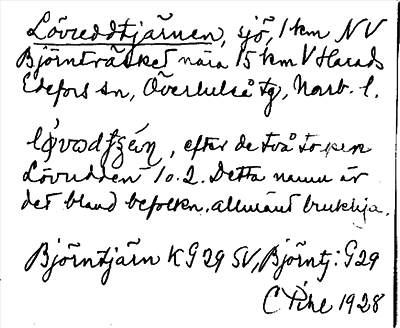 Lövuddtjärnen, sjö, 1 km NV
Björnträsket nära 15 km V Harads
Edefors sn, Överluleå tg, Norb. l.
, efter de två token
Lövudden 1 o. 2. Detta namn är
det bland befolkn. allmänt brukliga.
Björntjärn KG 29 SV, Björntj: G29
C Pihl 1928